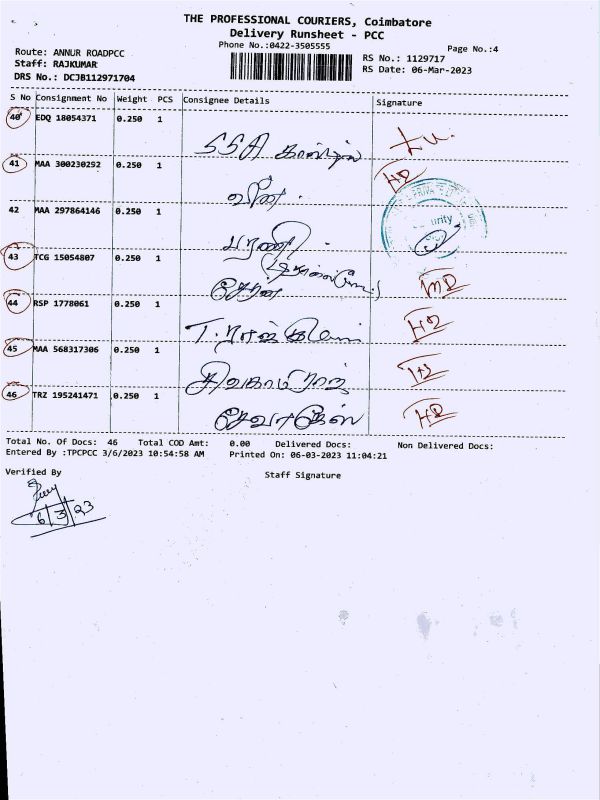 THE PROFESSIONAL COURIERS, Coimbatore
Delivery Runsheet - PCC
Phone No.:0422-3505555
Page No.:4
Route: ANNUR ROADPCC
Staff: RAJKUMAR
DRS No.: DCJB112971704
RS No.: 1129717
RS Date: 06-Mar-2023
S No Consignment No Weight PCS Consignee Details Signature
40 EDQ 18054371 0.250 1
SSA
41 MAA 300230292 0.250 1
HD
42 MAA 297864146 0.250 1
பரணி
43 TCG 15054807 0.250 1
MD
44 RSP 1778061 0.250 1
T. HD
45 MAA 568317306 0.250 1
சிவகாமி ராஜ்
46 TRZ 195241471 0.250 1
HD
Total No. Of Docs: 46 Total COD Amt: 0.00 Delivered Docs: Non Delivered Docs:
Entered By :TPCPCC 3/6/2023 10:54:58 AM Printed On: 06-03-2023 11:04:21
Verified By Staff Signature
6/3/23